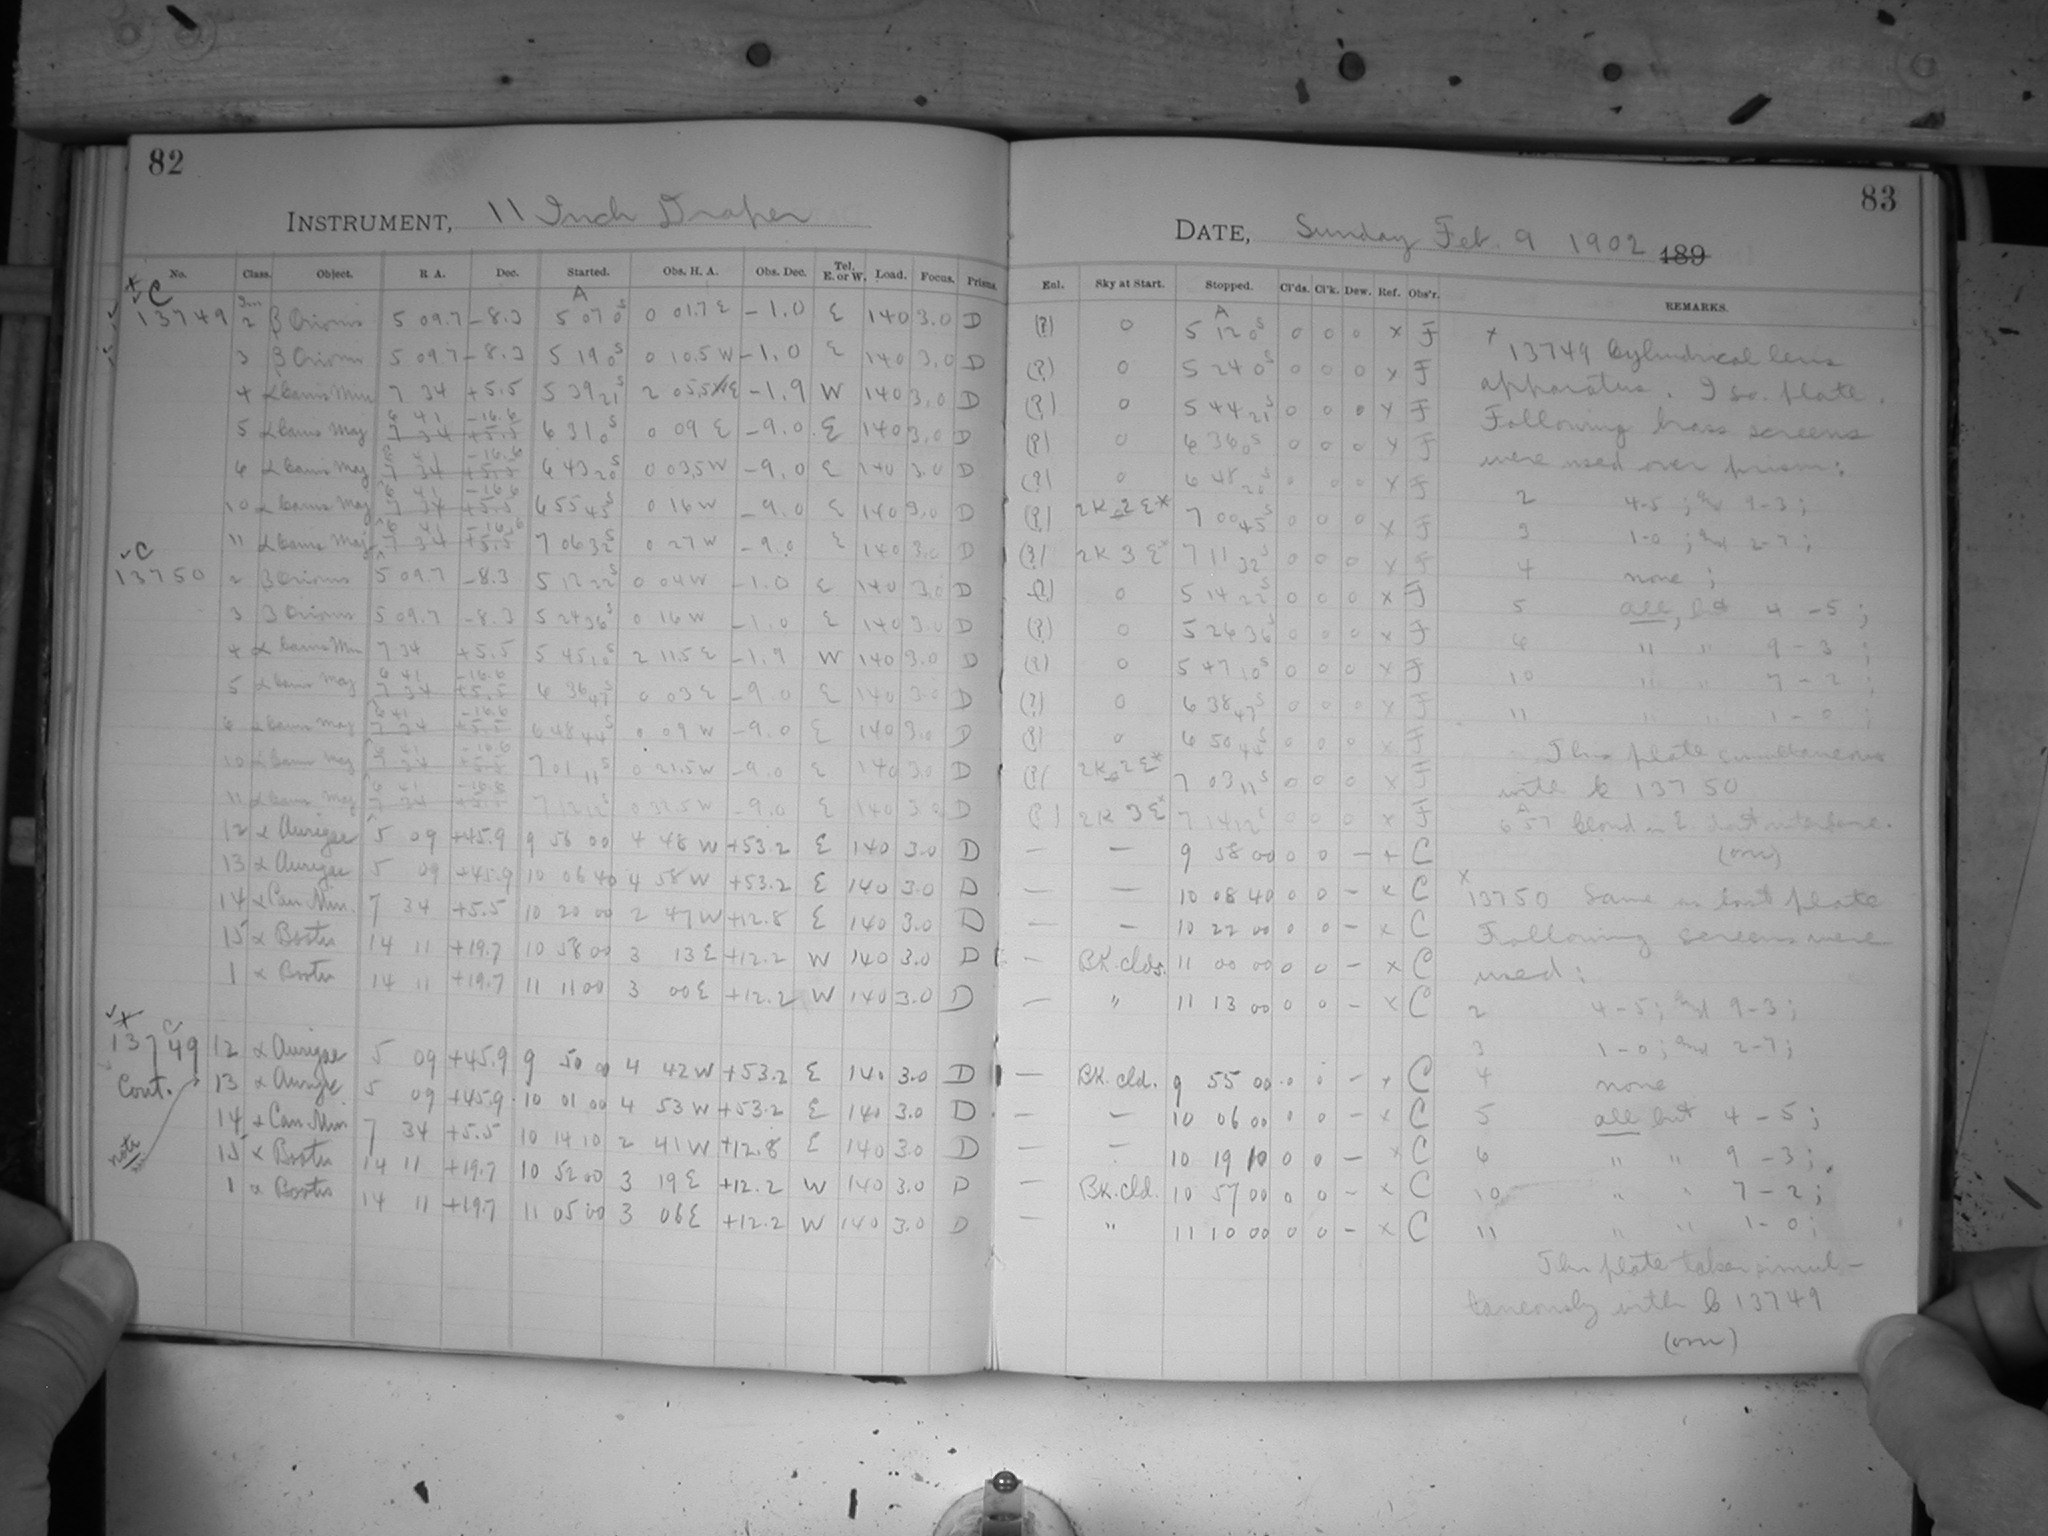 82
INSTRUMENT, 11 Inch Draper
No. Class. Object. R. A. Dec. Started. Obs. H. A. Obs. Dec. Tel. E. or W. Load. Focus. Prisms.
13749 2 β Orionis 5 09.7 -8.3 5 07 0s 0 01.7 E -1.0 E 140 3.0 D
3 β Orionis 5 09.7 -8.3 5 19 0s 0 10.5 W -1.0 E 140 3.0 D
4 α Canis Min 7 34 +5.5 5 39 21s 2 05.5 E -1.9 W 140 3.0 D
5 α Canis Maj 6 41 -16.6 7 34 +5.5 6 31 0s 0 09 E -9.0 E 140 3.0 D
6 α Canis Maj 6 41 -16.6 7 34 +5.5 6 43 20s 0 03.5 W -9.0 E 140 3.0 D
10 α Canis Maj 6 41 -16.6 7 34 +5.5 6 55 45s 0 16 W -9.0 E 140 3.0 D
11 α Canis Maj 6 41 -16.6 7 34 +5.5 7 06 32s 0 27 W -9.0 E 140 3.0 D
13750 2 β Orionis 5 09.7 -8.3 5 12 22s 0 04 W -1.0 E 140 3.0 D
3 β Orionis 5 09.7 -8.3 5 24 36s 0 16 W -1.0 E 140 3.0 D
4 α Canis Min 7 34 +5.5 5 45 10s 2 11.5 E -1.9 W 140 3.0 D
5 α Canis Maj 6 41 -16.6 7 34 +5.5 6 36 47s 0 03 E -9.0 E 140 3.0 D
6 α Canis Maj 6 41 -16.6 7 34 +5.5 6 48 44s 0 09 W -9.0 E 140 3.0 D
10 α Canis Maj 6 41 -16.6 7 34 +5.5 7 01 11s 0 21.5 W -9.0 E 140 3.0 D
11 α Canis Maj 6 41 -16.6 7 34 +5.5 7 12 12s 0 32.5 W -9.0 E 140 3.0 D
12 α Aurigae 5 09 +45.9 9 56 00 4 48 W +53.2 E 140 3.0 D
13 α Aurigae 5 09 +45.9 10 06 40 4 58 W +53.2 E 140 3.0 D
14 α Can Min. 7 34 +5.5 10 20 00 2 47 W +12.8 E 140 3.0 D
15 α Bootis 14 11 +19.7 10 58 00 3 13 E +12.2 W 140 3.0 D
1 α Bootis 14 11 +19.7 11 11 00 3 00 E +12.2 W 140 3.0 D
13749 12 α Aurigae 5 09 +45.9 9 50 00 4 42 W +53.2 E 140 3.0 D
Cont. 13 α Aurigae 5 09 +45.9 10 01 00 4 53 W +53.2 E 140 3.0 D
14 α Can Min 7 34 +5.5 10 14 10 2 41 W +12.8 E 140 3.0 D
note 15 α Bootis 14 11 +19.7 10 52 00 3 19 E +12.2 W 140 3.0 D
1 α Bootis 14 11 +19.7 11 05 00 3 06 E +12.2 W 140 3.0 D
83
DATE, Sunday Feb. 9 1902 189
Enl. Sky at Start. Stopped. Cl'ds. Cl'k. Dew. Ref. Obs'r. REMARKS.
(?) 0 5 12 0s 0 0 0 x F
(?) 0 5 24 0s 0 0 0 x F
(?) 0 5 44 21s 0 0 0 x F
(?) 0 6 36 0s 0 0 0 x F
(?) 0 6 48 20s 0 0 0 x F
(?) 2K 2E* 7 00 45s 0 0 0 x F
(?) 2K 3E* 7 11 32s 0 0 0 x F
(?) 0 5 14 22s 0 0 0 x F
(?) 0 5 26 36s 0 0 0 x F
(?) 0 5 47 10s 0 0 0 x F
(?) 0 6 38 47s 0 0 0 x F
(?) 0 6 50 44s 0 0 0 x F
(?) 2K 2E* 7 03 11s 0 0 0 x F
(?) 2K 3E* 7 14 12s 0 0 0 x F
— — 9 58 00 0 0 — x C
— — 10 08 40 0 0 — x C
— — 10 22 00 0 0 — x C
— BK. clds. 11 00 00 0 0 — x C
— " 11 13 00 0 0 — x C
— BK. cld. 9 55 00 0 0 — x C
— — 10 06 00 0 0 — x C
— — 10 19 10 0 0 — x C
— BK. cld. 10 57 00 0 0 — x C
— " 11 10 00 0 0 — x C
x 13749 Cylindrical lens
apparatus. Iso. plate.
Following brass screens
were used over prism:
2 4-5; and 9-3;
3 1-0; and 2-7;
4 none;
5 all, but 4-5;
6 " " 9-3;
10 " " 7-2;
11 " " 1-0;
This plate simultaneous
with b 13750
6 57 cloud in E
(over)
x 13750 Same as last plate
Following screens were
used:
2 4-5; and 9-3;
3 1-0; and 2-7;
4 none
5 all but 4-5;
6 " " 9-3;
10 " " 7-2;
11 " " 1-0;
This plate taken simul-
taneously with b 13749
(over)